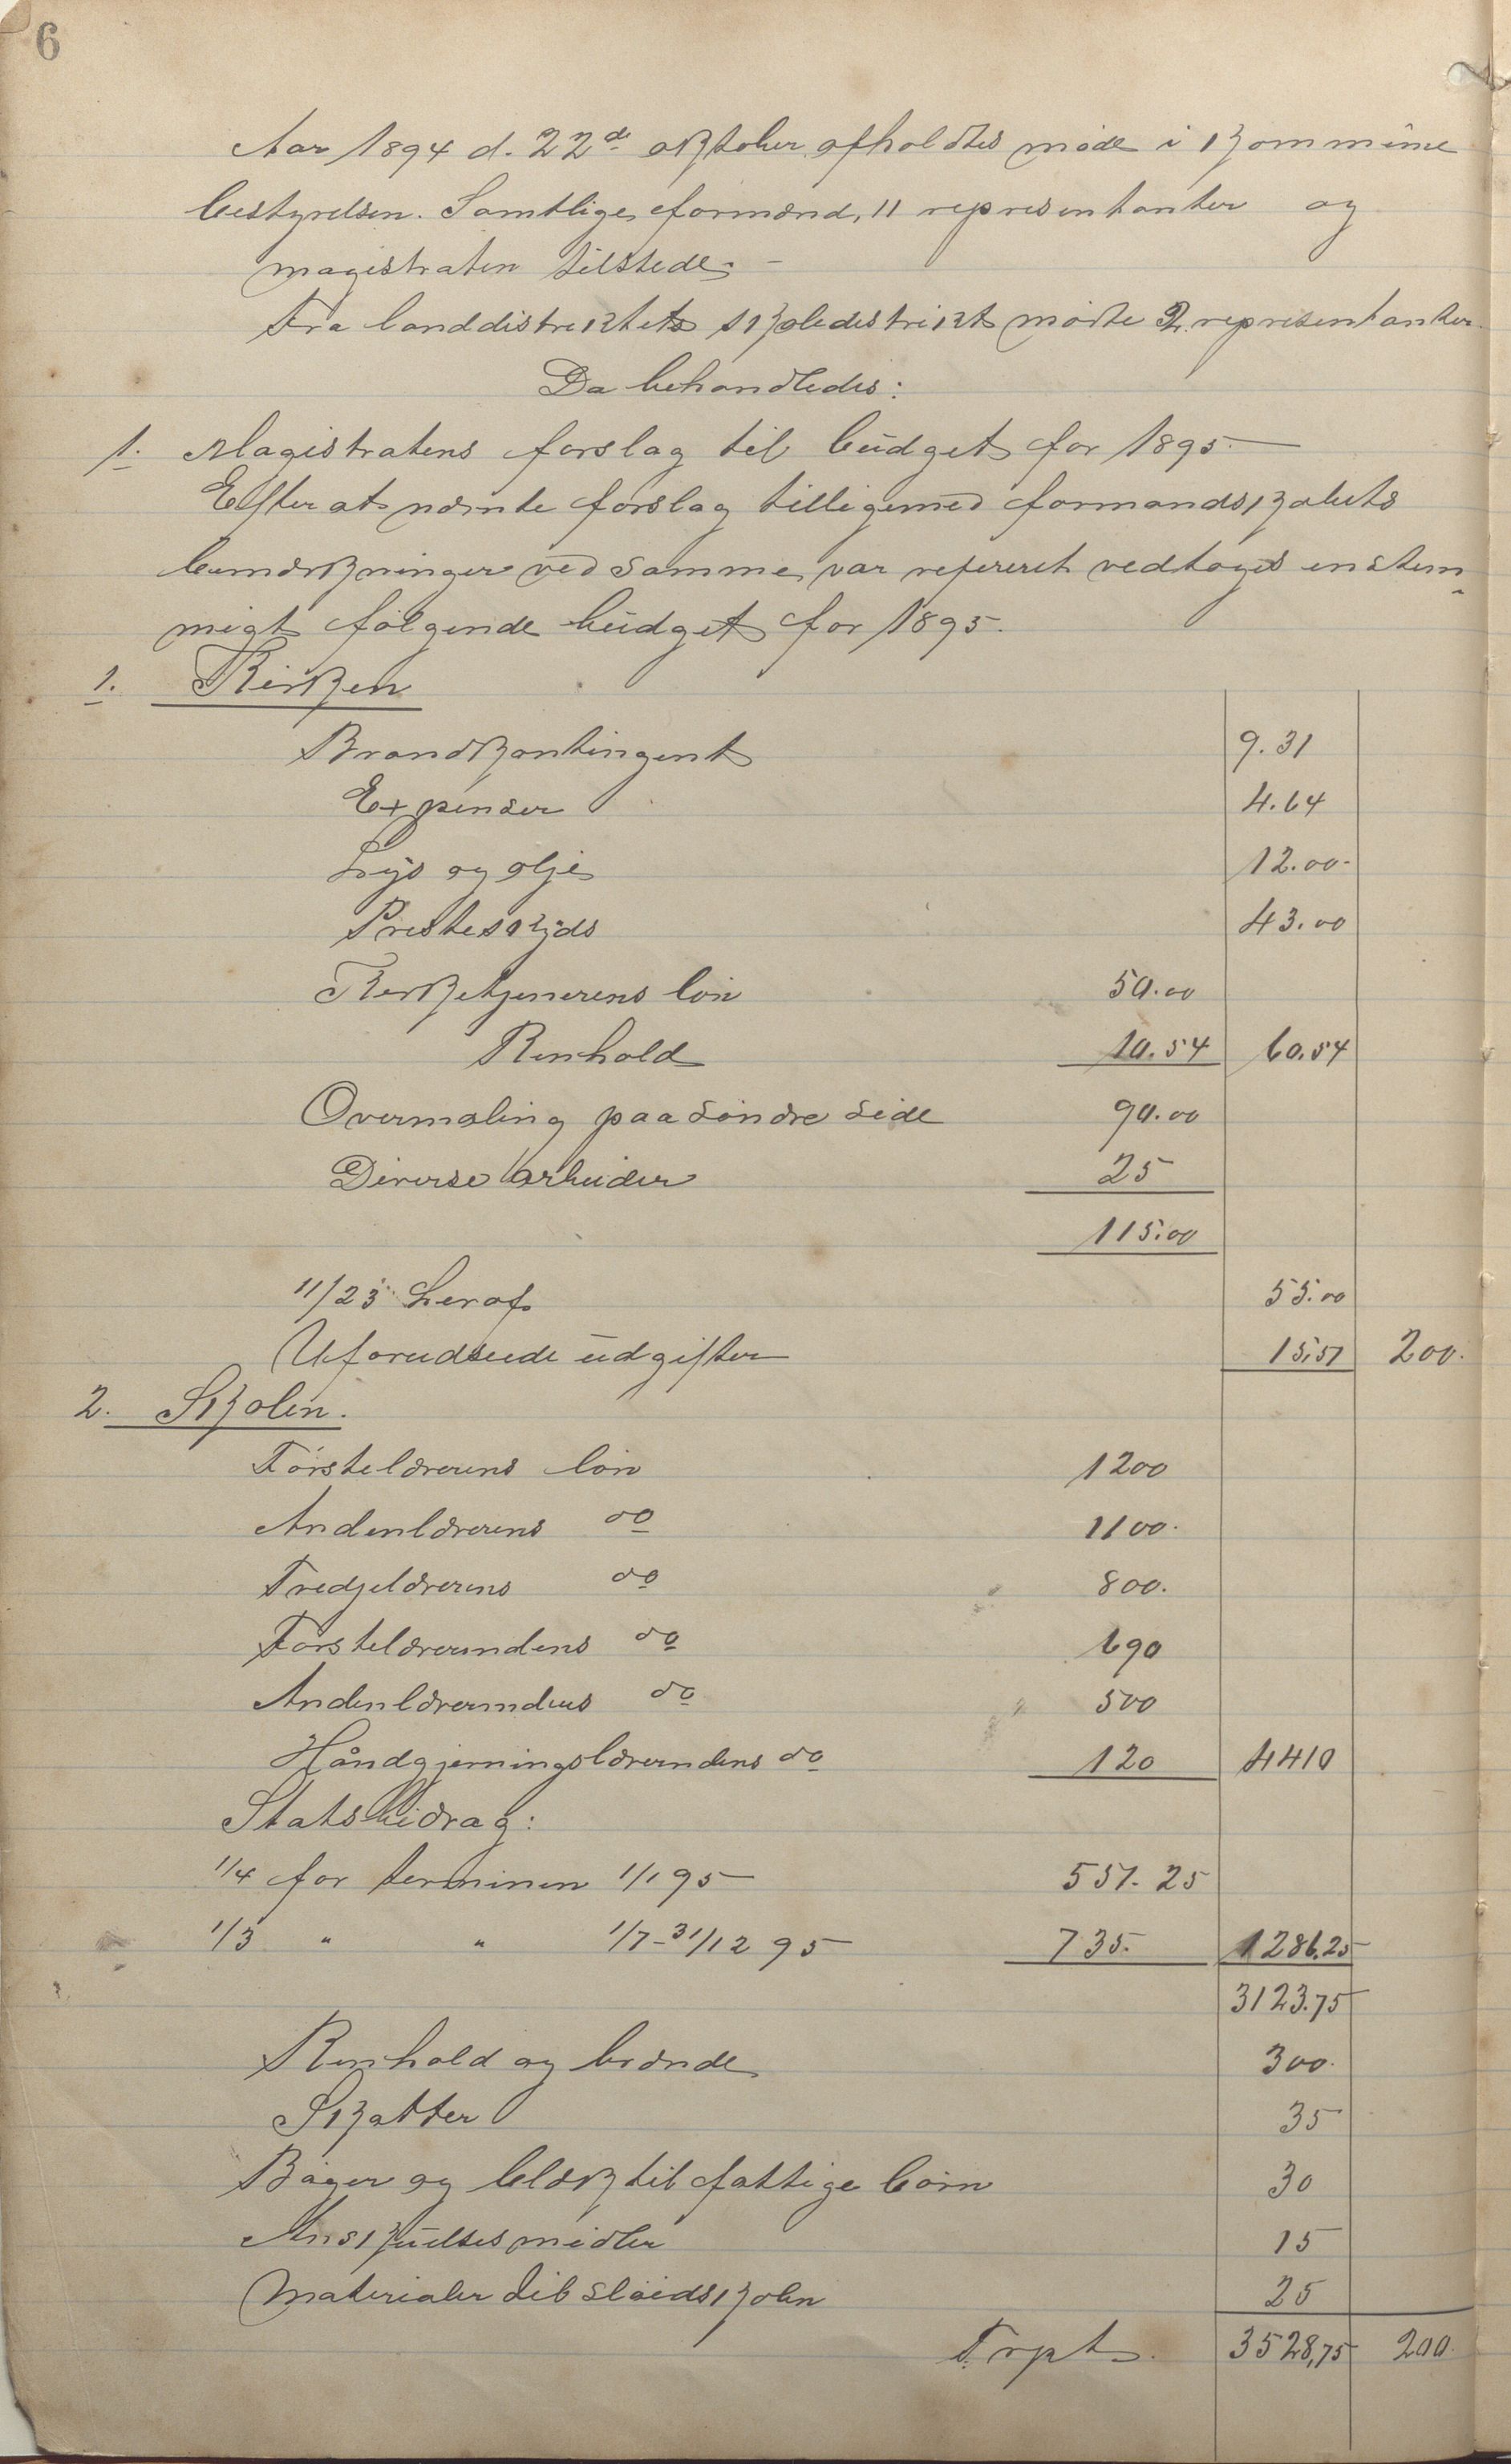 6
Aar 1894 d. 22de oktober afholdtes møde i kommune
bestyrelsen. Samtlige formænd, 11 representanter og
magistraten tilstede. –
Fra landdistriktets skoledistrikt mødte 2 representanter.
Da behandledes:
1. Magistratens forslag til budget for 1895 –
Efter at nævnte forslag tilligemed formandskabets
bemærkninger ved samme var refereret vedtoges enstem-
migt følgende budget for 1895.
1. Kirken
Brandkontingent 9.31
Expenser 4.64
Lys og olje 12.00.
Presteskyds 43.00
Kirketjenerens løn 50.00
Renhold 10.54 60.54
Overmaling paa søndre side 90.00
Diverse arbeider 25
115.00
11/23 heraf 55.00
Uforudseede udgifter 15.51 200.
2. Skolen.
Førstelærerens løn 1200
Andenlærerens do 1100.
Tredjelærerens do 800.
Førstelærerindens do 690
Andenlærerindens do 500
Håndgjerningslærerindens do 120 4410
Statsbidrag:
1/4 for terminen 1/1 95 551.25
1/3 " " 1/7-31/12 95 735. 1286.25
3123.75
Renhold og brænde 300.
Skatter 35
Bøger og blæk til fattige børn 30
Anskuelsesmidler 15
Materialer til sløidskolen 25
Trpt. 3528,75 200.